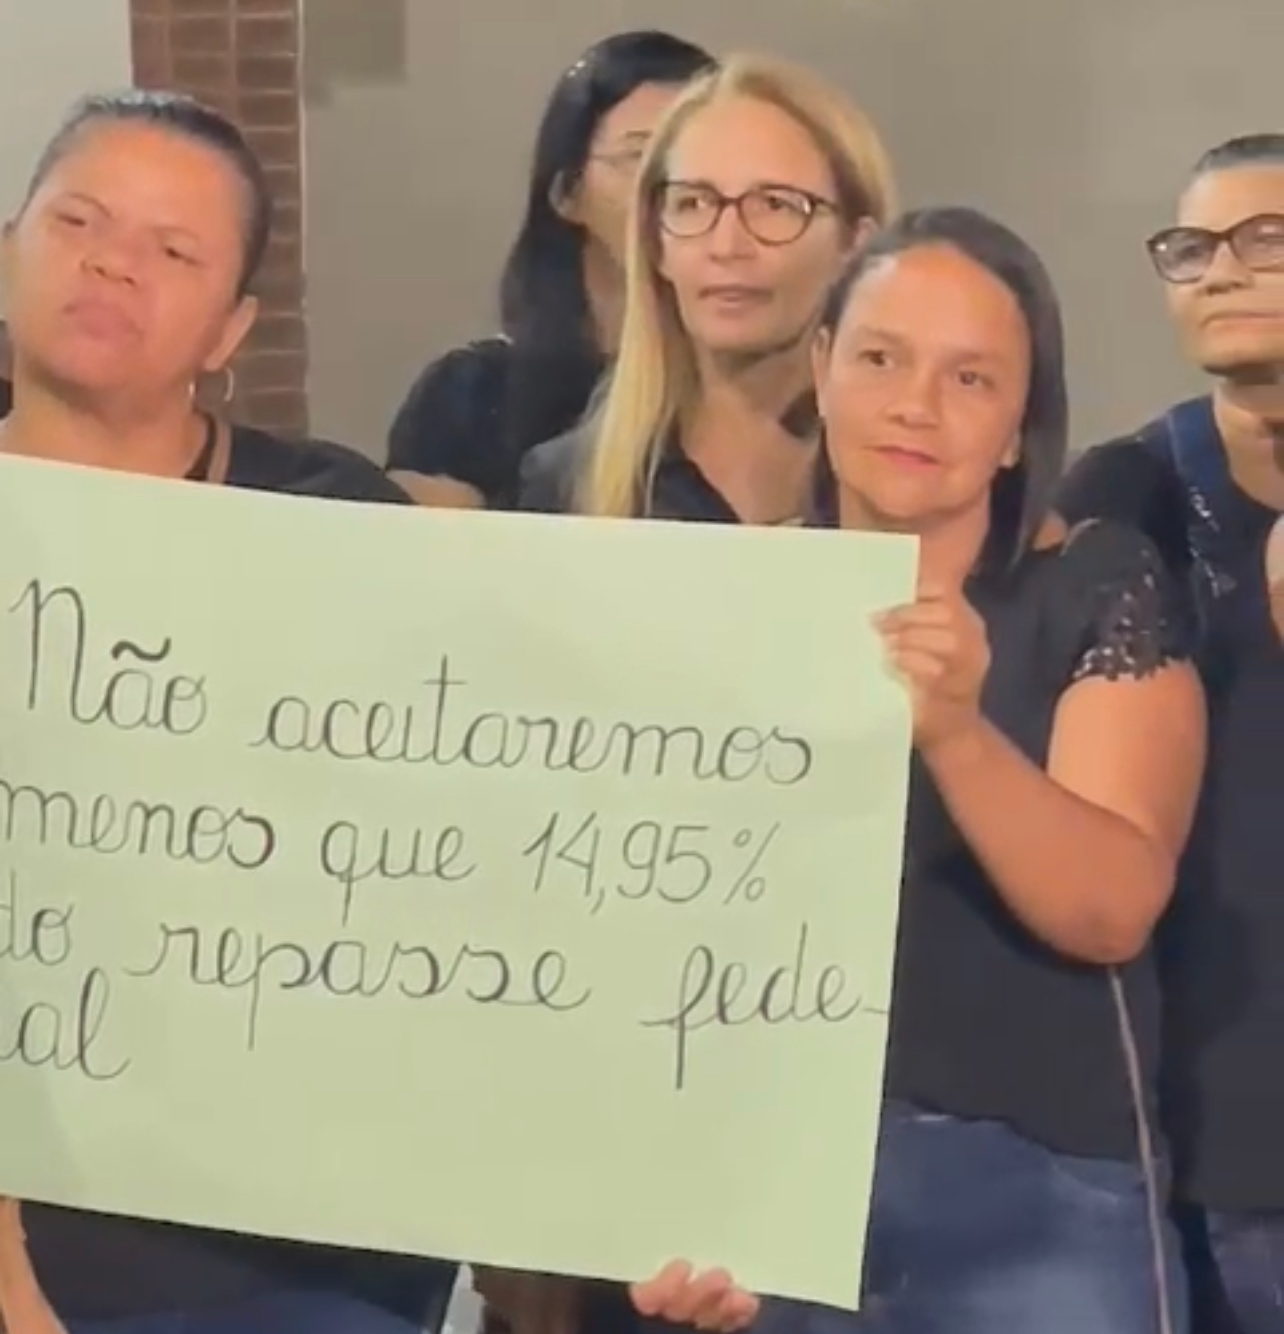 Não aceitaremos
menos que 14,95%
do repasse fede-
al